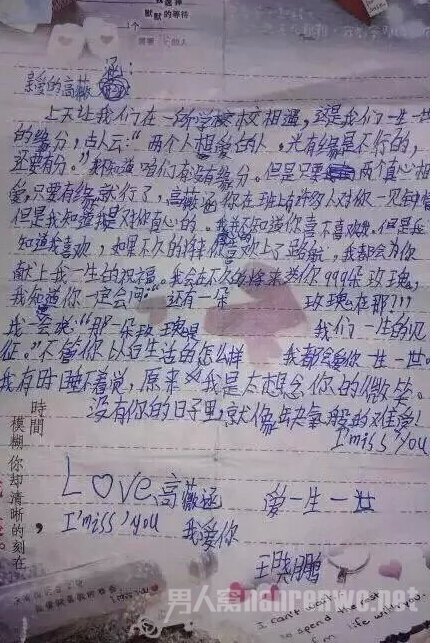 默默的等待
亲爱的高薇涵：
上天让我们在一所学校相遇，这是我们一生一世
的缘分，古人云：“两个人相爱的人，光有缘是不行的，
还要有分。”我知道咱们有没有缘分。但是只要两个真心相
爱，只要有缘就行了，高薇涵你在班上有许多人对你一见钟情
但是我知道我是对你真心的。我并不知道你喜不喜欢我。但是我
知道我喜欢，如果不久的将来你喜欢上了路航，我都会为你
献上我一生的祝福。我会在不久的将来为你999朵玫瑰，
我知道你一定会问：“还有一朵玫瑰在那?!!!
我一会说：“那一朵玫瑰是我们一生的见
征。”不管你以后生活的怎么样我都会爱你一生一世。
我有时睡不着觉，原来是我是太想念你的微笑。
没有你的日子里，就像缺氧般的难受！
I'miss You
Love 高薇涵 爱一生一世
I'miss'you 我爱你
王晓鹏
時間，
模糊你却清晰的刻在
男人窝nanrenwo.net
I can't wait
to spend
life with